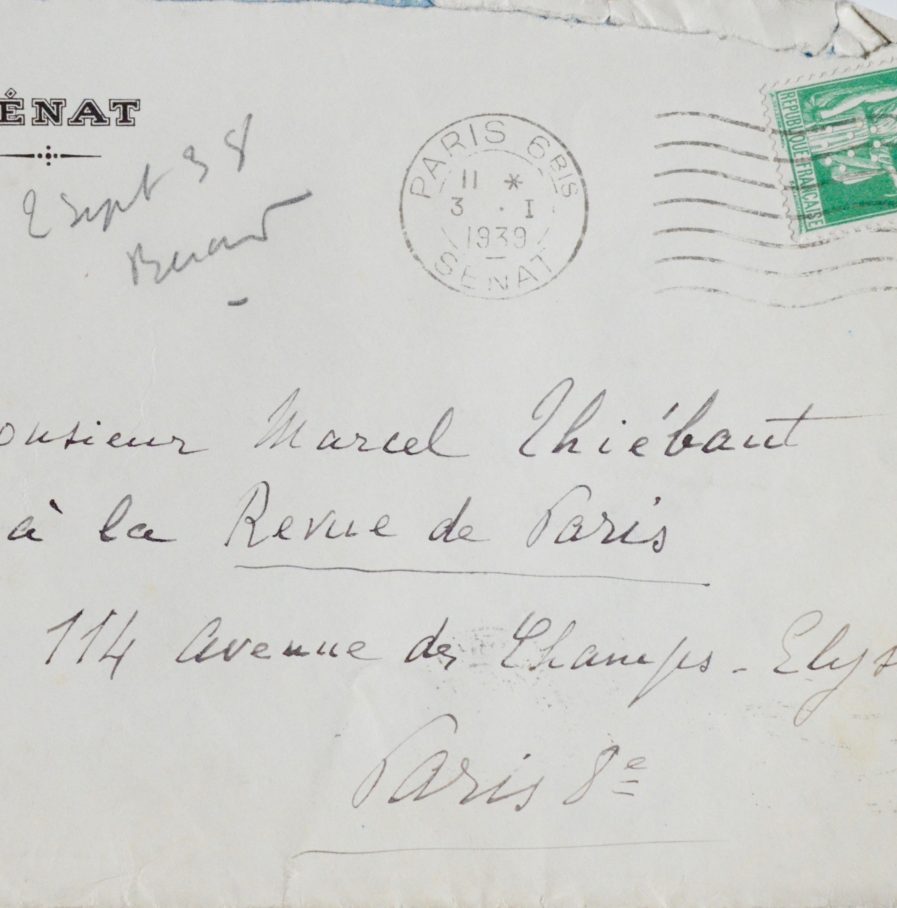 ÉNAT
2 Sept 38
PARIS 6 BIS
11 *
3 . I
1939
SÉNAT
REPUBLIQUE FRANCAISE
onsieur Marcel Thiébaut
à la Revue de Paris
114 avenue des Champs-Elys
Paris 8e